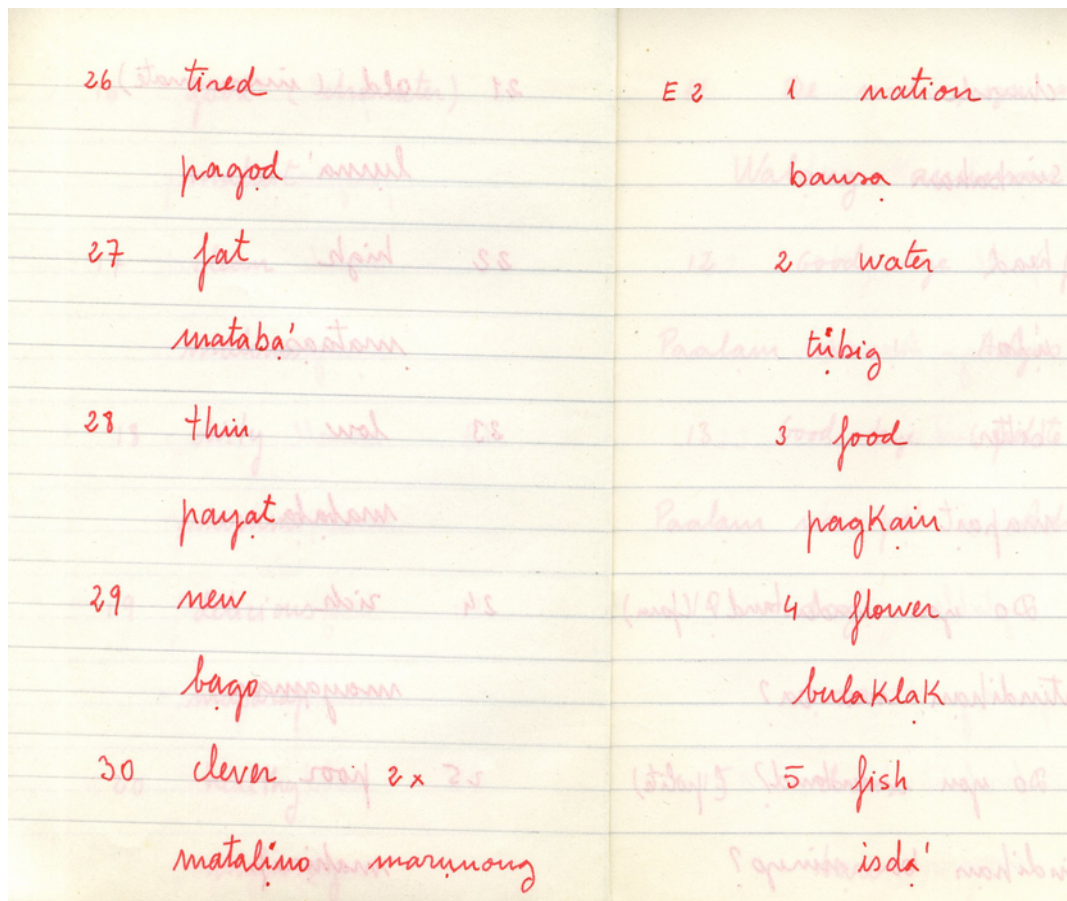 26 tired
pagọd
27 fat
matabạ'
28 thin
payạt
29 new
bạgo
30 clever 2x
matalịno marụnong
E 2 1 nation
bansạ
2 water
tụbig
3 food
pagKạin
4 flower
bulaKlạK
5 fish
isdạ'